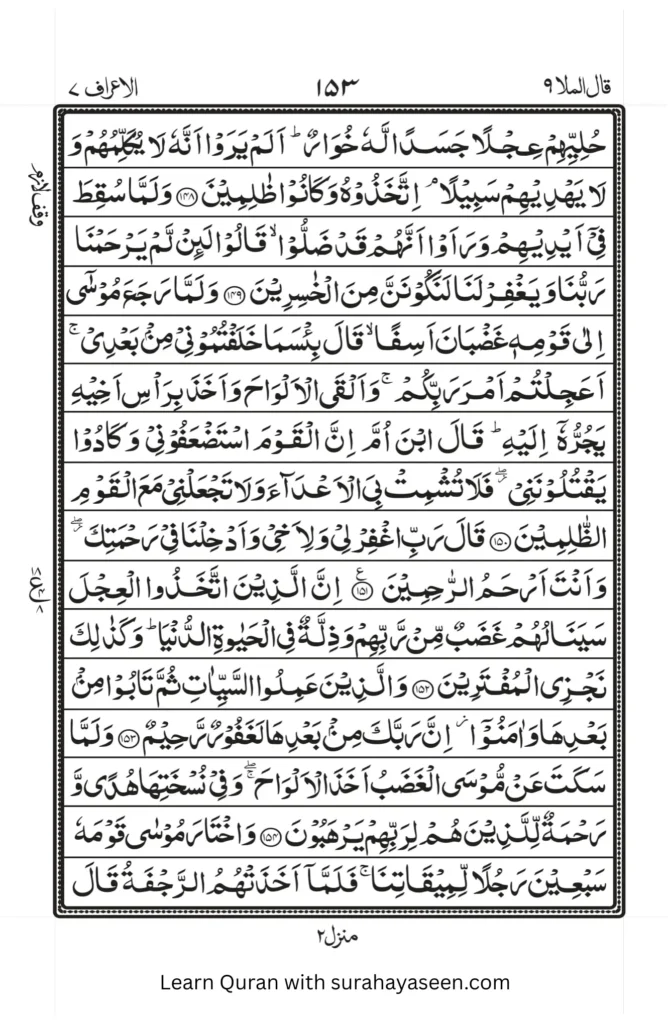 قال الملا ۹
۱۵۳
الاعراف ۷
حُلِيِّهِمْ عِجْلًا جَسَدًا لَّهٗ خُوَارٌ ؕ اَلَمْ يَرَوْا اَنَّهٗ لَا يُكَلِّمُهُمْ وَ
لَا يَهْدِيْهِمْ سَبِيْلًا ۘ اِتَّخَذُوْهُ وَكَانُوْا ظٰلِمِيْنَ ﴿۱۴۸﴾ وَلَمَّا سُقِطَ
وقف لازم
فِيْۤ اَيْدِيْهِمْ وَرَاَوْا اَنَّهُمْ قَدْ ضَلُّوْا ۙ قَالُوْا لَئِنْ لَّمْ يَرْحَمْنَا
رَبُّنَا وَيَغْفِرْ لَنَا لَنَكُوْنَنَّ مِنَ الْخٰسِرِيْنَ ﴿۱۴۹﴾ وَلَمَّا رَجَعَ مُوْسٰۤى
اِلٰى قَوْمِهٖ غَضْبَانَ اَسِفًا ۙ قَالَ بِئْسَمَا خَلَفْتُمُوْنِيْ مِنْۢ بَعْدِيْ ۚ
اَعَجِلْتُمْ اَمْرَ رَبِّكُمْ ۚ وَاَلْقَى الْاَلْوَاحَ وَاَخَذَ بِرَاْسِ اَخِيْهِ
يَجُرُّهٗۤ اِلَيْهِ ؕ قَالَ ابْنَ اُمَّ اِنَّ الْقَوْمَ اسْتَضْعَفُوْنِيْ وَكَادُوْا
يَقْتُلُوْنَنِيْ ۖ فَلَا تُشْمِتْ بِيَ الْاَعْدَآءَ وَلَا تَجْعَلْنِيْ مَعَ الْقَوْمِ
الظّٰلِمِيْنَ ﴿۱۵۰﴾ قَالَ رَبِّ اغْفِرْ لِيْ وَلِاَخِيْ وَاَدْخِلْنَا فِيْ رَحْمَتِكَ ۖ
وَاَنْتَ اَرْحَمُ الرّٰحِمِيْنَ ﴿۱۵۱﴾ ع اِنَّ الَّذِيْنَ اتَّخَذُوا الْعِجْلَ
سَيَنَالُهُمْ غَضَبٌ مِّنْ رَّبِّهِمْ وَذِلَّةٌ فِي الْحَيٰوةِ الدُّنْيَا ؕ وَكَذٰلِكَ
نَجْزِي الْمُفْتَرِيْنَ ﴿۱۵۲﴾ وَالَّذِيْنَ عَمِلُوا السَّيِّاٰتِ ثُمَّ تَابُوْا مِنْۢ
بَعْدِهَا وَاٰمَنُوْۤا ۫ اِنَّ رَبَّكَ مِنْۢ بَعْدِهَا لَغَفُوْرٌ رَّحِيْمٌ ﴿۱۵۳﴾ وَلَمَّا
سَكَتَ عَنْ مُّوْسَى الْغَضَبُ اَخَذَ الْاَلْوَاحَ ۖۚ وَفِيْ نُسْخَتِهَا هُدًى وَّ
رَحْمَةٌ لِّلَّذِيْنَ هُمْ لِرَبِّهِمْ يَرْهَبُوْنَ ﴿۱۵۴﴾ وَاخْتَارَ مُوْسٰى قَوْمَهٗ
سَبْعِيْنَ رَجُلًا لِّمِيْقَاتِنَا ۚ فَلَمَّاۤ اَخَذَتْهُمُ الرَّجْفَةُ قَالَ
منزل۲
Learn Quran with surahayaseen.com